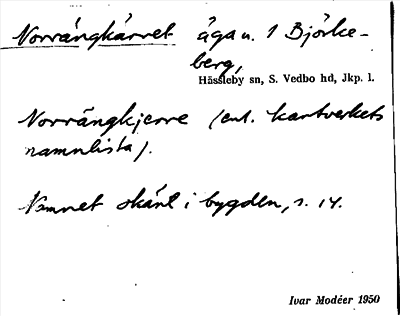 Norrängkärret ägan. 1 Björke-
berg,
Hässleby sn, S. Vedbo hd, Jkp. l.
Norrängkjerre (enl. kartverkets
namnlista).
Namnet okänt i bygden, s. 14.
Ivar Modéer 1950